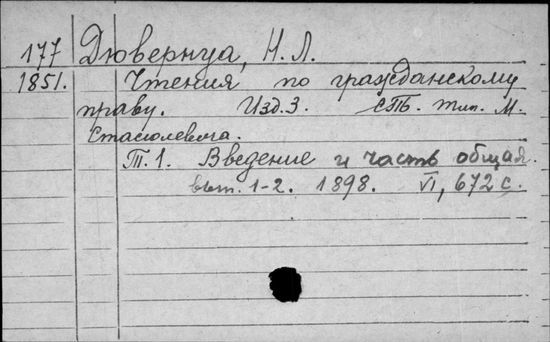 177 Дювернуа, Н. Л.
1851. Чтения по гражданскому
праву. Изд. 3. СПБ. тип. М.
Стасюлевича.
Т. 1. Введение и часть общая.
вып. 1-2. 1898. VI, 672 с.